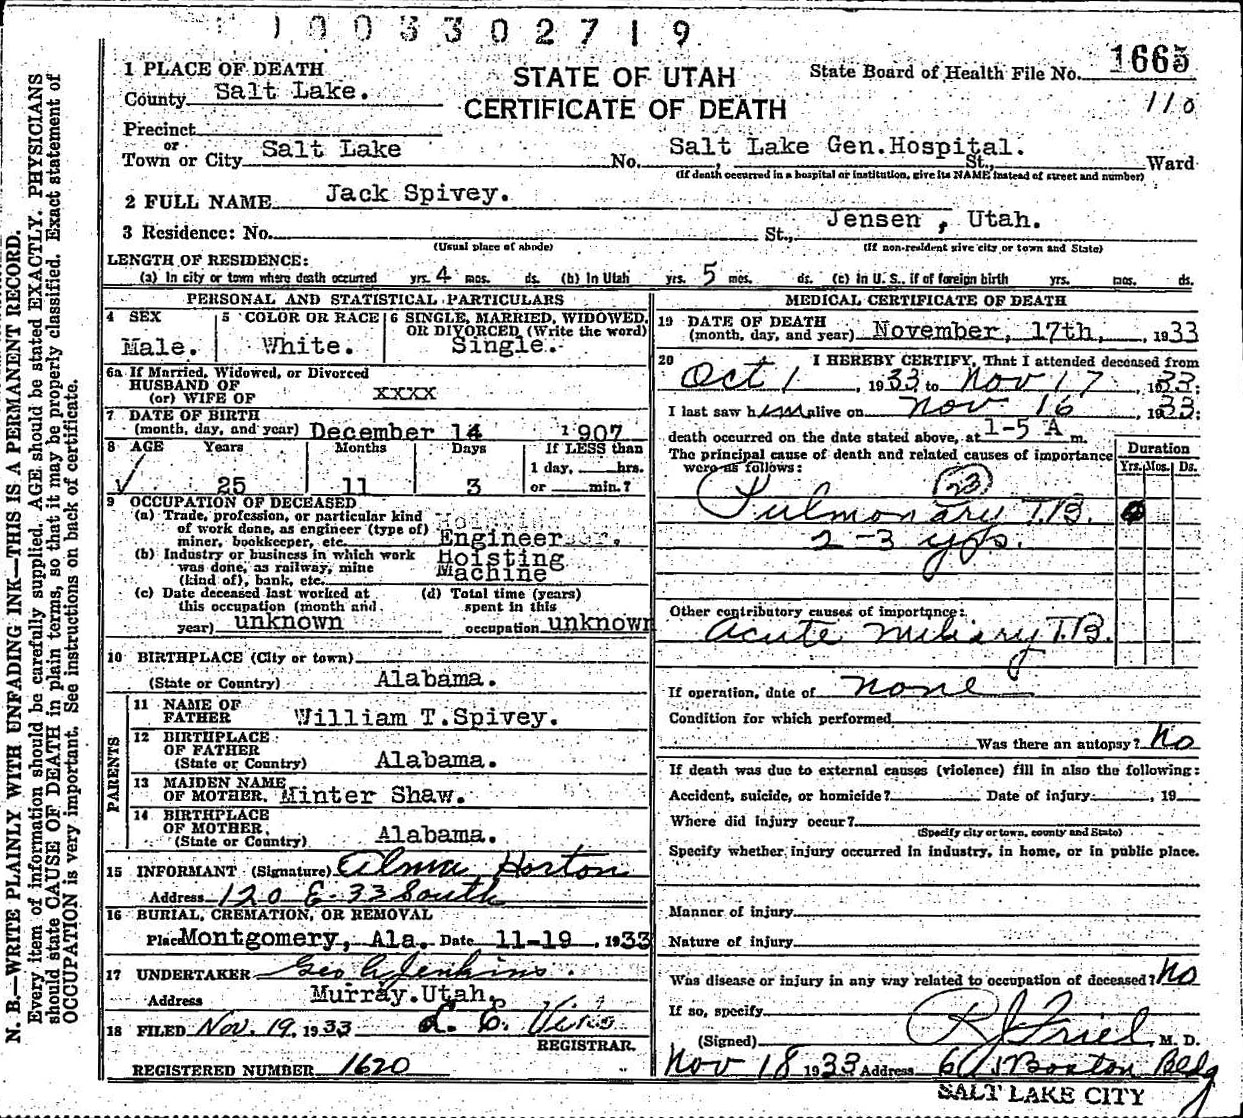 1003302719
1 PLACE OF DEATH
STATE OF UTAH
CERTIFICATE OF DEATH
State Board of Health File No. 1665
110
County Salt Lake.
Precinct
or
Town or City Salt Lake No. Salt Lake Gen. Hospital. St., Ward
(If death occurred in a hospital or institution, give its NAME instead of street and number)
2 FULL NAME Jack Spivey.
3 Residence: No. St., Jensen, Utah.
(Usual place of abode) (If non-resident give city or town and State)
LENGTH OF RESIDENCE:
(a) In city or town where death occurred yrs. 4 mos. ds. (b) In Utah yrs. 5 mos. ds. (c) In U. S., if of foreign birth yrs. mos. ds.
PERSONAL AND STATISTICAL PARTICULARS
4 SEX Male.
5 COLOR OR RACE White.
6 SINGLE, MARRIED, WIDOWED, OR DIVORCED (Write the word) Single.
6a If Married, Widowed, or Divorced
HUSBAND OF
(or) WIFE OF xxxx
7 DATE OF BIRTH
(month, day, and year) December 14 1907
8 AGE Years Months Days If LESS than
1 day, hrs.
✓ 25 11 3 or min.?
9 OCCUPATION OF DECEASED
(a) Trade, profession, or particular kind
of work done, as engineer (type of)
miner, bookkeeper, etc. Engineer
(b) Industry or business in which work Hoisting
was done, as railway, mine Machine
(kind of), bank, etc.
(c) Date deceased last worked at
this occupation (month and
year) unknown
(d) Total time (years)
spent in this
occupation unknown
10 BIRTHPLACE (City or town)
(State or Country) Alabama.
PARENTS
11 NAME OF
FATHER William T. Spivey.
12 BIRTHPLACE
OF FATHER
(State or Country) Alabama.
13 MAIDEN NAME
OF MOTHER. Minter Shaw.
14 BIRTHPLACE
OF MOTHER.
(State or Country) Alabama.
15 INFORMANT (Signature) Alma Horton
Address 120 E-33 South
16 BURIAL, CREMATION, OR REMOVAL
Place Montgomery, Ala. Date 11-19, 1933
17 UNDERTAKER Geo A Jenkins.
Address Murray. Utah.
18 FILED Nov. 19, 1933 L. E.
REGISTRAR.
REGISTERED NUMBER 1620
MEDICAL CERTIFICATE OF DEATH
19 DATE OF DEATH
(month, day, and year) November, 17th, 1933
20 I HEREBY CERTIFY, That I attended deceased from
Oct 1, 1933 to Nov 17 1933:
I last saw him alive on Nov 16, 1933:
death occurred on the date stated above, at 1-5 A m.
The principal cause of death and related causes of importance
were as follows:
Duration
Yrs. Mos. Ds.
23
Pulmonary T.B.
2-3 yrs.
Other contributory causes of importance:
Acute Miliary T.B.
If operation, date of none
Condition for which performed
Was there an autopsy? No
If death was due to external causes (violence) fill in also the following:
Accident, suicide, or homicide? Date of injury , 19
Where did injury occur?
(Specify city or town, county and State)
Specify whether injury occurred in industry, in home, or in public place.
Manner of injury
Nature of injury
Was disease or injury in any way related to occupation of deceased? No
If so, specify
(Signed) R J Friel, M. D.
Nov 18 1933 Address Boston Bldg
SALT LAKE CITY
N. B.—WRITE PLAINLY WITH UNFADING INK—THIS IS A PERMANENT RECORD.
Every item of information should be carefully supplied. AGE should be stated EXACTLY. PHYSICIANS
should state CAUSE OF DEATH in plain terms, so that it may be properly classified. Exact statement of
OCCUPATION is very important. See instructions on back of certificate.